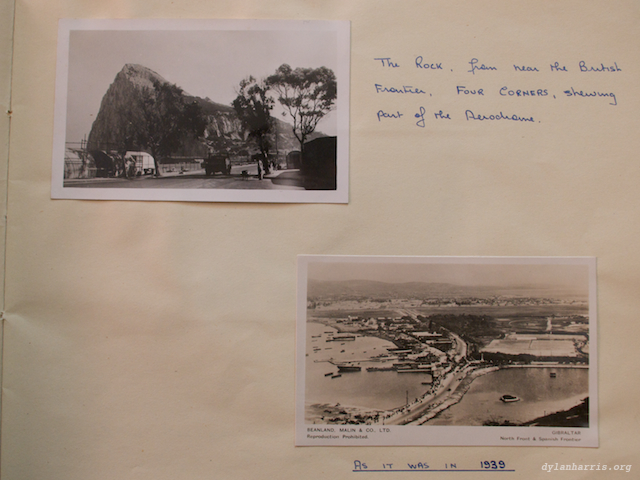 The Rock, from near the British
Frontier, FOUR CORNERS, shewing
part of the Aerodrome.
BEANLAND, MALIN & CO., LTD.
Reproduction Prohibited.
GIBRALTAR
North Front & Spanish Frontier
AS IT WAS IN 1939
dylanharris.org